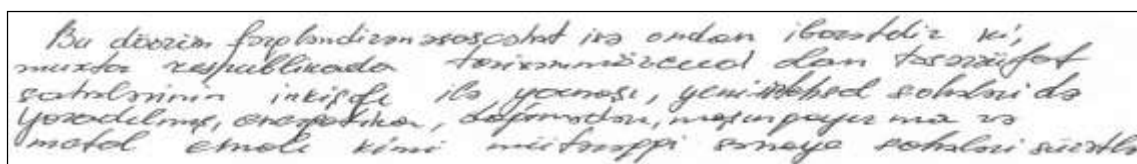 Bu dövrün fərqləndirən əsas cəhət isə ondan ibarətdir ki,
muxtar respublikada tarixən mövcud olan təsərrüfat
sahələrinin inkişafı ilə yanaşı, yeni sahələri də
yaradılmış, energetika, maşınqayırma və
metal emalı kimi mütərəqqi sənaye sahələri sürətlə